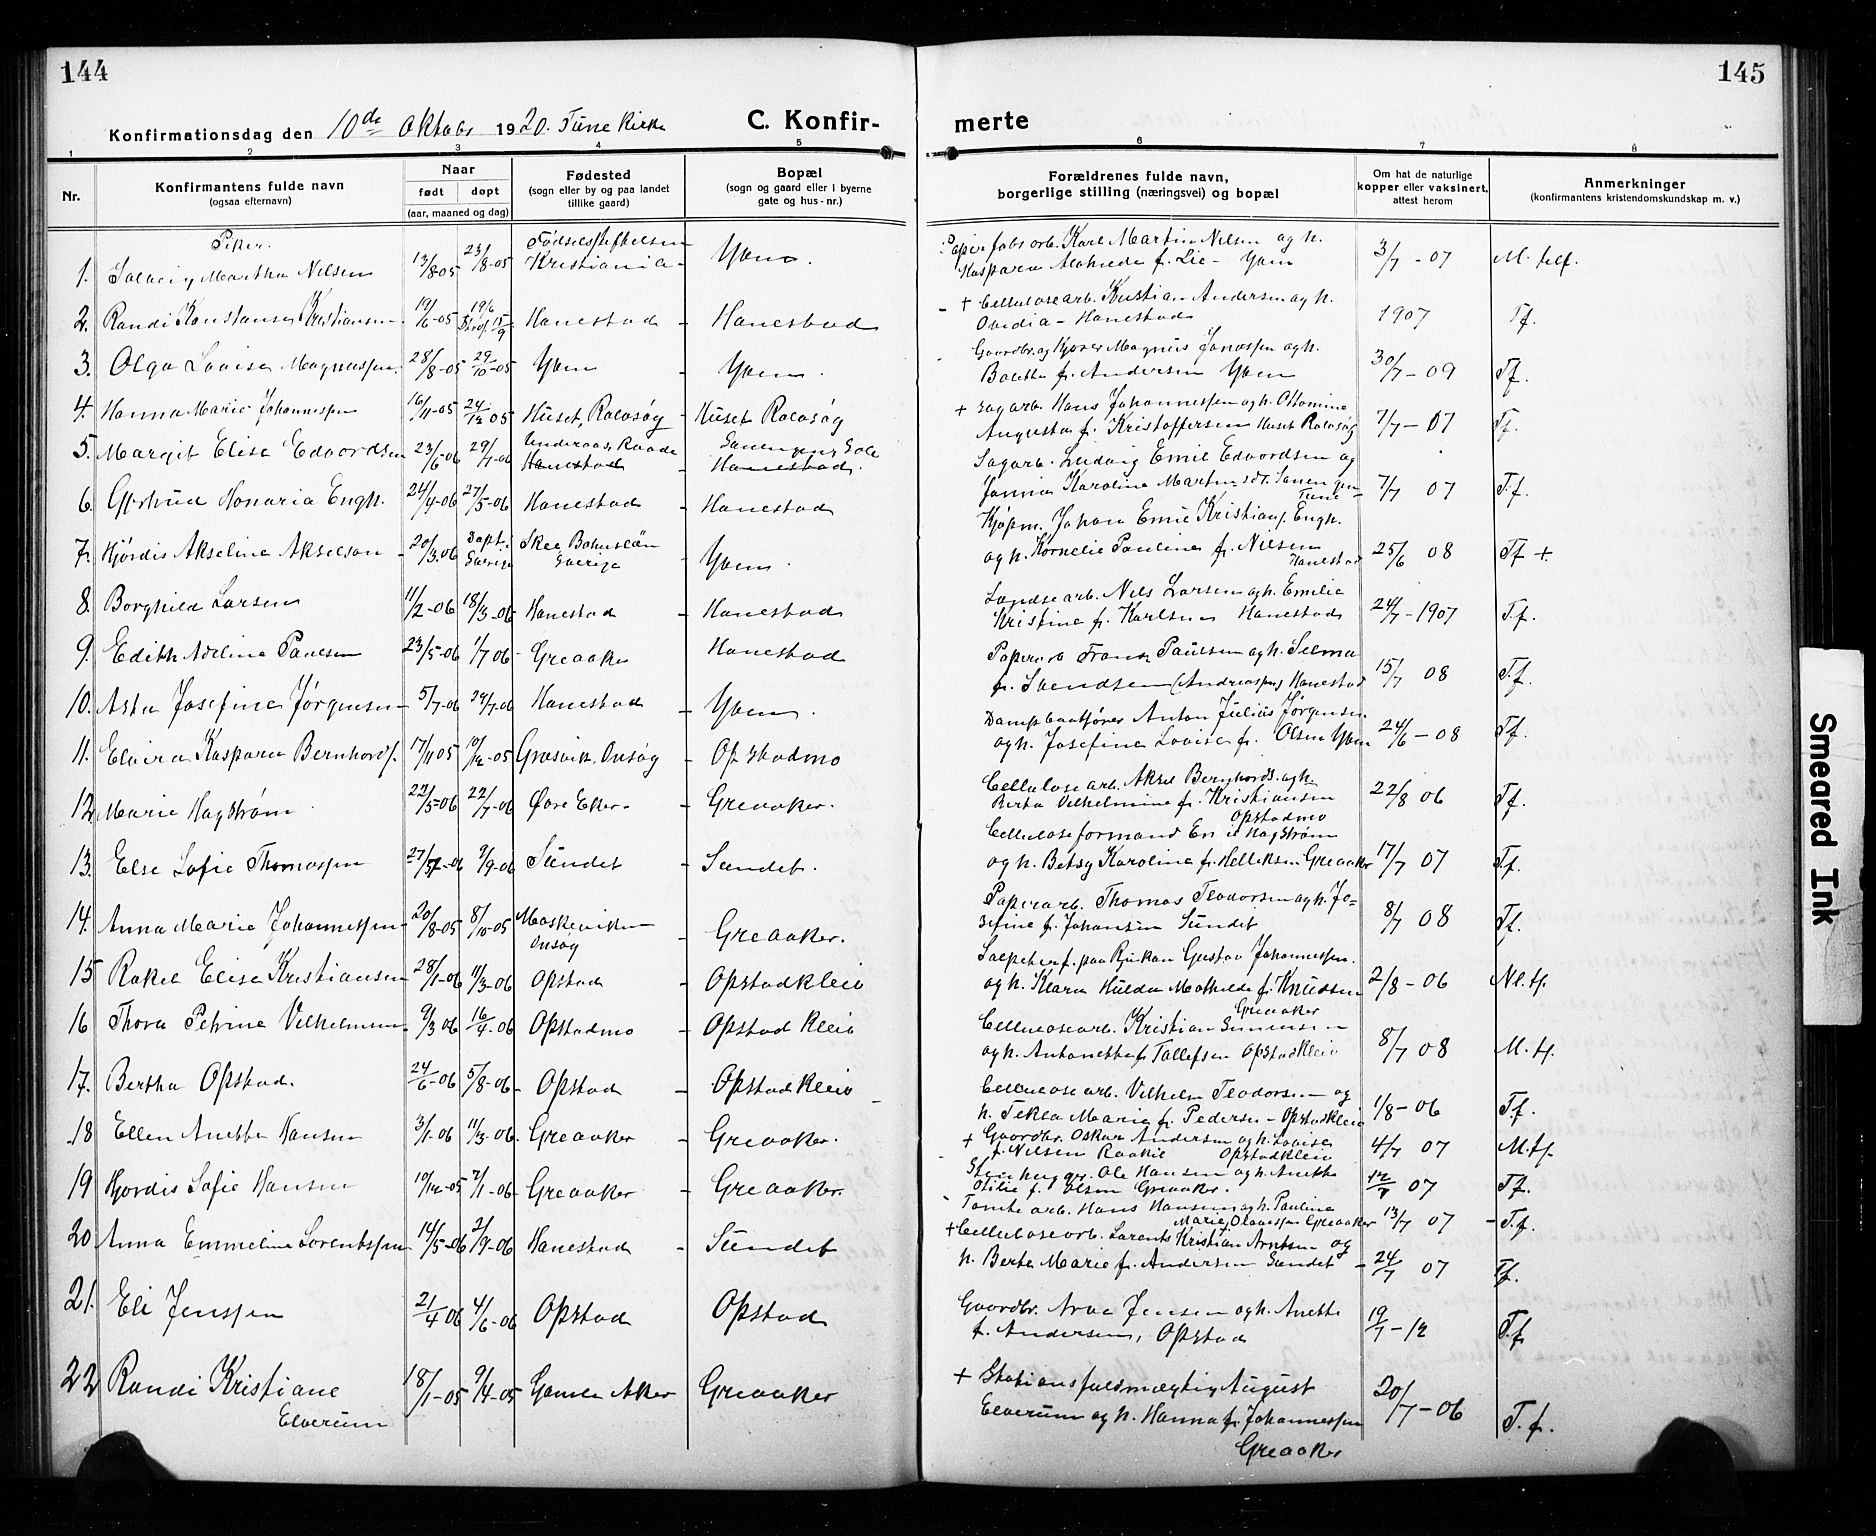 144
145
Konfirmationsdag den 10de Oktobr 1920. Tune Kirke
C. Konfir-
merte
1 2 3 4 5 6 7 8
Nr.
Konfirmantens fulde navn
(ogsaa efternavn)
Naar
født døpt
(aar, maaned og dag)
Fødested
(sogn eller by og paa landet
tillike gaard)
Bopæl
(sogn og gaard eller i byerne
gate og hus-nr.)
Forældrenes fulde navn,
borgerlige stilling (næringsvei) og bopæl
Om hat de naturlige
kopper eller vaksinert,
attest herom
Anmerkninger
(konfirmantens kristendomskundskap m. v.)
Piker.
1. Solveig Martha Nilsen 13/8-05 23/8-05 Fødselsstiftelsen Kristiania - Yven.
Papirfabr.arb. Karl Martin Nilsen og h.
Kaspara f. Lie - Yven 3/7 - 07
2. Randi Konstanse Kristiansen 19/6-05 Hanestad - Hanestad
+ Cellulosearb. Kristian Andersen og h.
Ovidia - Hanestad 1907 Tf.
3. Olga Lovise Magnussen 28/8-05 29/10-05 Yven - Yven.
Gaardbr. og Kjører Magnus Jonassen og h.
Bolette f. Andersen Yven 30/7 - 09 Tf.
4. Hanna Marie Johannessen 16/11-05 24/12 05 Huset, Rolvsøy - Huset Rolvsøy
+ Sagarb. Hans Johannessen og h. Ottomine
Augusta f. Kristoffersen Huset Rolvsøy 7/7 - 07 Tf.
5. Margit Elise Edvardsen 23/6-06 29/7-06 Raade Hanestad - Hanestad.
Sagarb. Ludvig Emil Edvardsen og
Karoline 7/7 07 T.f.
6. Gjertrud Honoria Engh. 24/4-06 27/5-06 Hanestad - Hanestad
Kjøpm. Johan Emil Kristians. Engh.
og h. Kornelie Pauline f. Nilsen
Hanestad 25/6 08 Tf +
7. Hjørdis Akseline Akselson - 20/3.06 Døpt i Sverige Skee Bohuslän Sverige - Yven.
8. Borghild Larsen 11/2-06 18/3-06 Hanestad - Hanestad
Landsearb. Nils Larsen og h. Emilie
Kristine f. Karlsen Hanestad 24/7 - 1907 T.f.
9. Edith Adeline Paulsen 23/5-06 1/7 06 Greaaker Hanestad
Papirarb. Frans Paulsen og h. Selma
f. Svendsen (Andreassen) Hanestad 15/7 08 T.f.
10. Asta Josefine Jørgensen - 5/7-06 29/7-06 Hanestad - Yven.
Dampbaatfører Anton Julius Jørgensen
og h. Josefine Lovise f. Olsen Yven 24/6 - 08 Tf.
11. Elvira Kaspara Bernhards. 17/11 05 10/12-05 Græsvik, Onsøy - Opstadmo
Cellulosearb. Aksel Bernhards. og h.
Berta Vilhelmine f. Kristiansen
Opstadmo 22/8 06 Tf.
12. Marie Hagstrøm 22/5-06 22/7-06 Øvre Eker - Greaaker.
Celluloseformand Emil Hagstrøm
og h. Betsy Karoline f. Helliksen Greaaker 17/7 07 T.f.
13. Else Sofie Thomassen 27/5-06 9/9-06 Sundet - Sundet.
Papirarb. Thomas Teodorsen og h. Jo=
sefine f. Johansen Sundet 8/7 08 Tf.
14. Anna Marie Johannessen 20/8-05 8/10-05 Onsøy - Greaaker.
Salpeterf. paa Rjukan Gustav Johannessen.
og h. Klara Hulda Mathilde f. Knudsen
Greaaker 2/8 - 06
15 Rakel Elise Kristiansen 28/1-06 11/3-06 Opstad - Opstadkleiv
Cellulosearb. Kristian
og h. Antonette f. Tollefsen Opstadkleiv 8/7 08 M. tf.
16 Thora Petrine Vilhelmsen 9/3 06 16/4-06 Opstadmo - Opstad kleiv
17. Bertha Opstad. 24/6-06 5/8-06 - Opstad - Opstadkleiv
Cellulosearb. Vilhelm Teodorsen og
h. Tekla Marie f. Pedersen - Opstadkleiv 1/8 - 06 T.f.
18 Ellen Anette Hansen 3/1-06 11/3-06 Greaaker - Greaaker.
+ Gaardbr. Oskar Andersen og h. Lovise
f. Nilsen Opstadkleiv 4/7 07 M.tf.
19 Hjørdis Sofie Hansen 10/12-05 7/1-06 Greaaker - Greaaker.
Stenhugger. Ole Hansen og h. Anette
Otilie f. Olsen Greaaker. 07 Tf.
Tomtearb. Hans Hansen og h. Pauline
Marie Olavessen Greaaker 13/7 07 - T.f.
20 Anna Emmeline Lorentssen 14/5-06 2/9-06 Hanestad - Sundet
+ Cellulosearb. Lorents Kristian Arntsen og
h. Berte Marie f. Andersen Sundet - 24/7 07 Tf.
21. Eli Jenssen 21/4 06 4/6-06 Opstad Opstad
Gaardbr. Arve Jensen og h. Anette
f. Andersen, Opstad 19/7 - 12 Tf
22 Randi Kristiane
Elverum 18/1-05 9/4-05 Gamle Aker Greaaker
+ Stationsfuldmægtig August
Elverum og h. Hanna f. Johannessen
Greaaker 20/7 - 06 T.f.
Smeared Ink